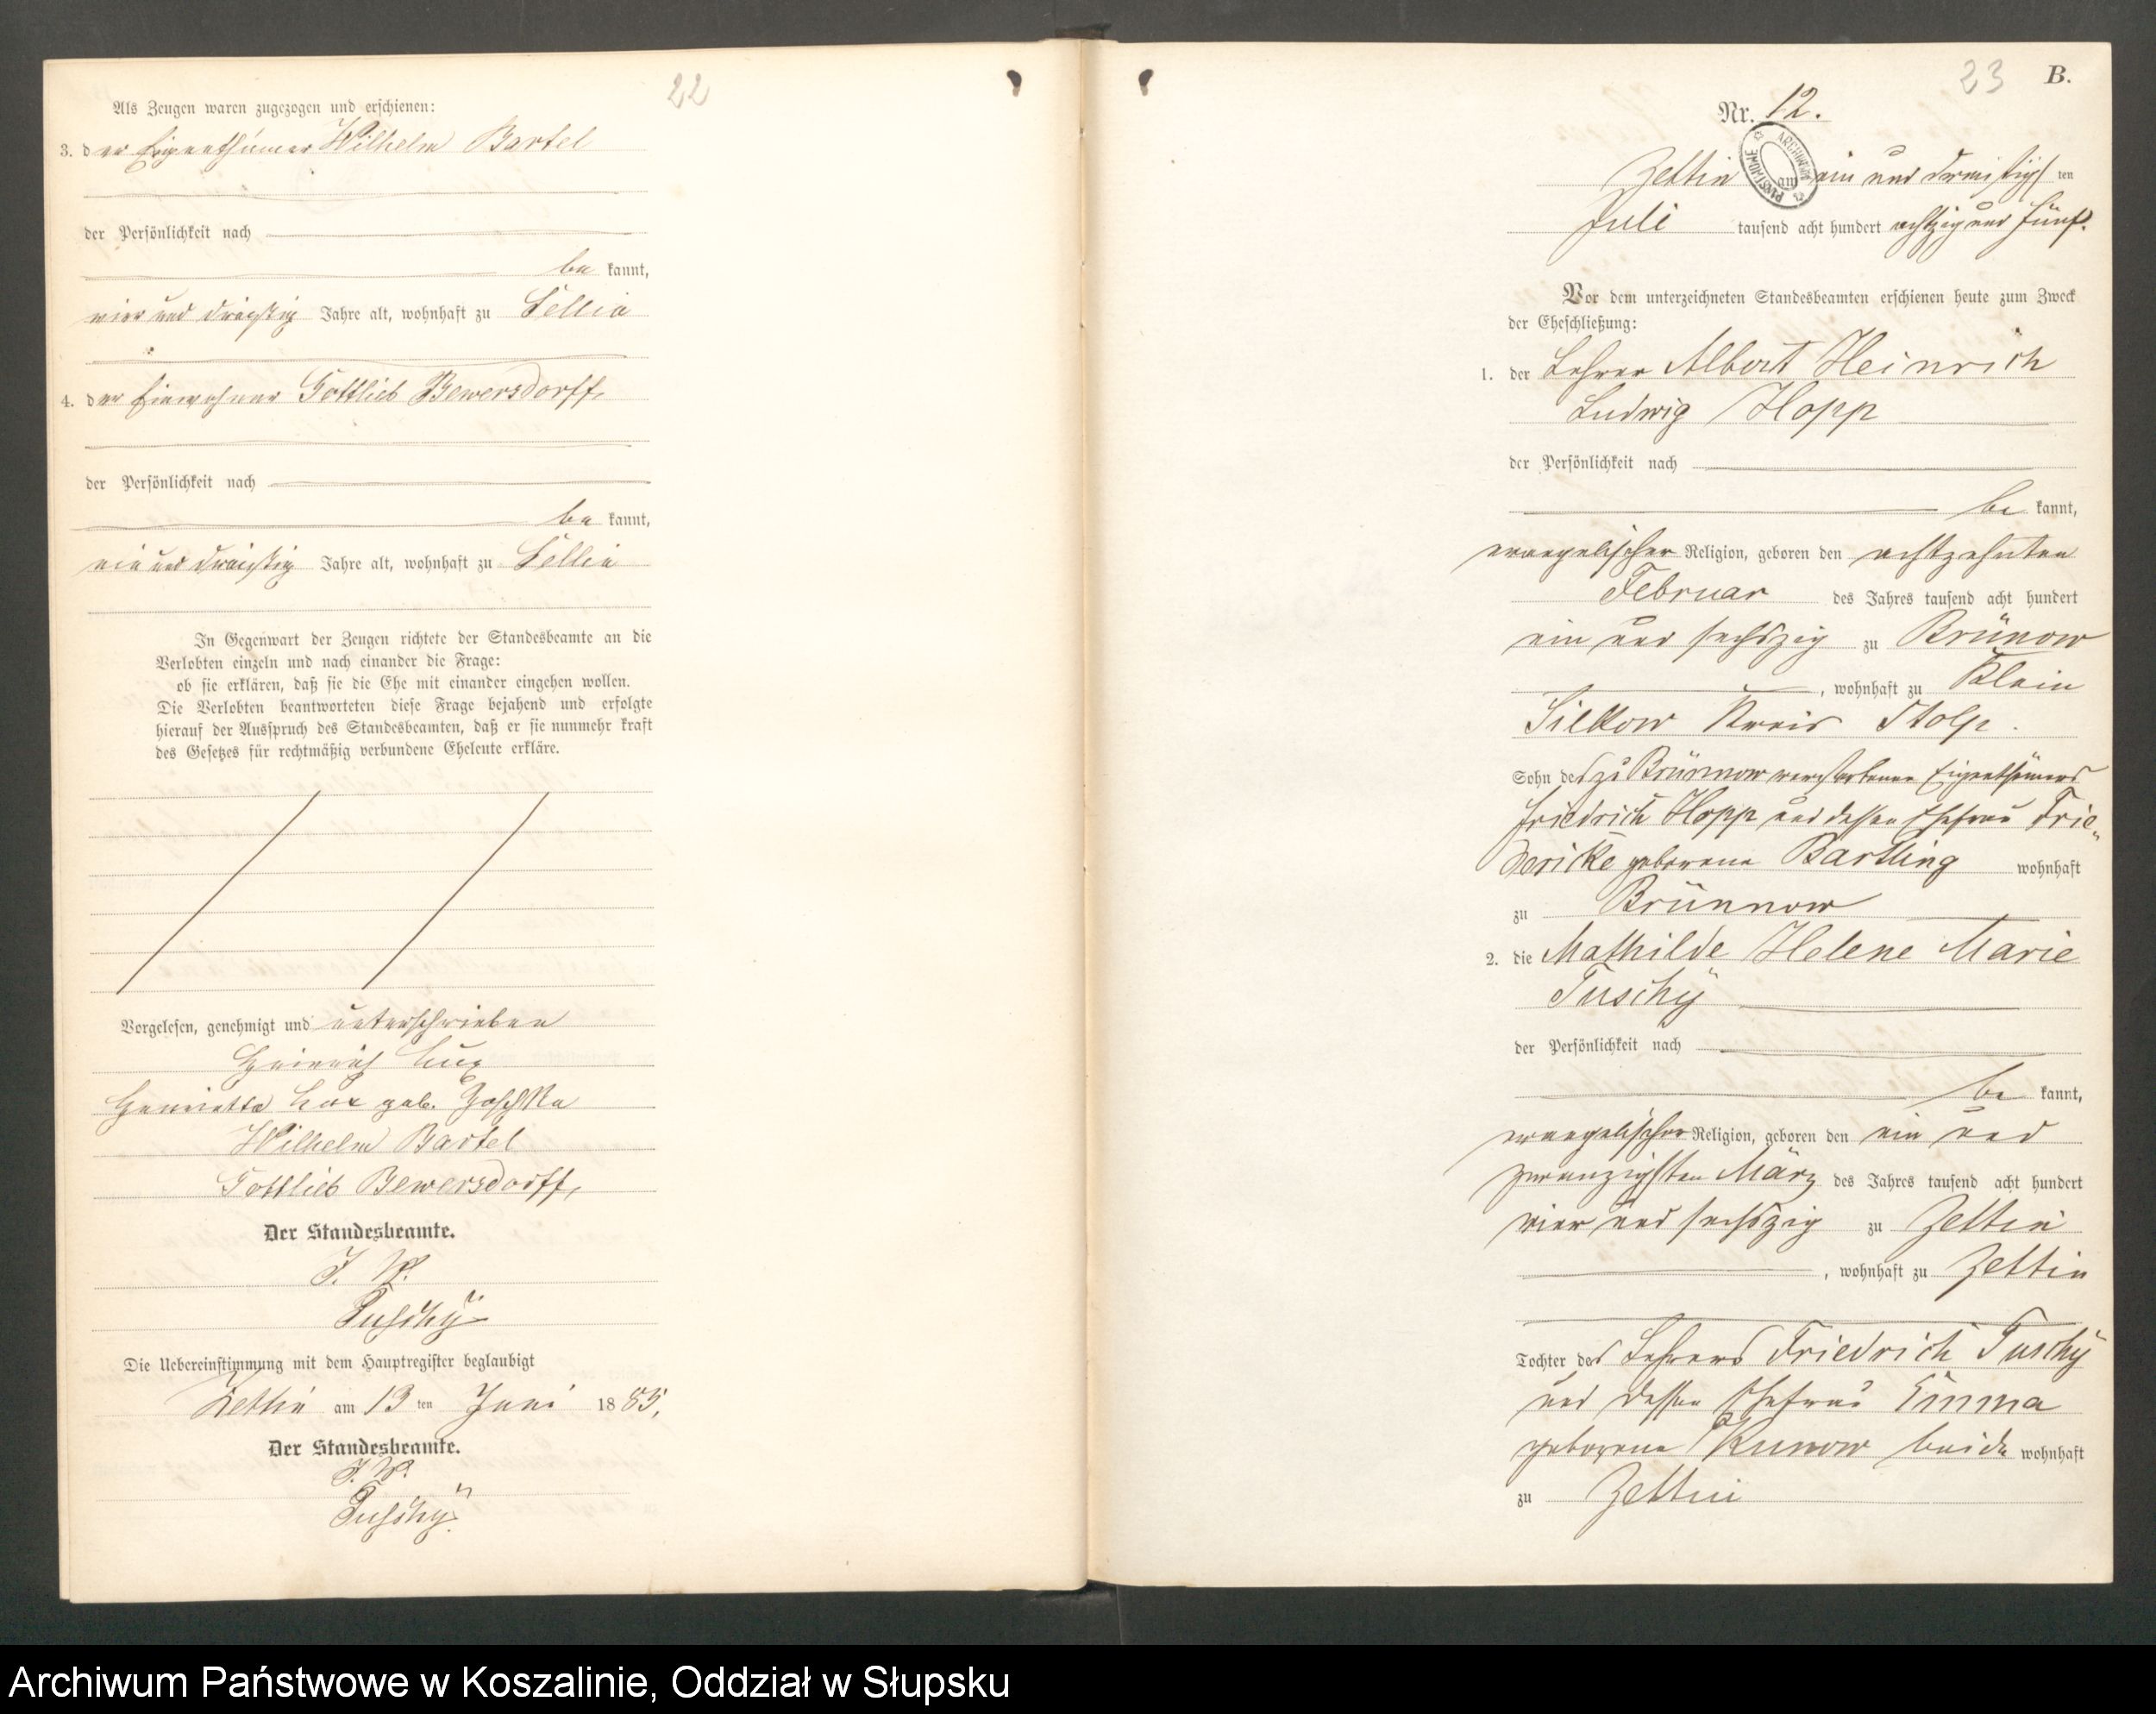 22
Als Zeugen waren zugezogen und erschienen:
3. der Eigenthümer Wilhelm Bartel
der Persönlichkeit nach
be kannt,
vier und dreißig Jahre alt, wohnhaft zu Sellin
4. der Einwohner Gottlieb Bewersdorff,
der Persönlichkeit nach
be kannt,
ein und dreißig Jahre alt, wohnhaft zu Sellin
In Gegenwart der Zeugen richtete der Standesbeamte an die
Verlobten einzeln und nach einander die Frage:
ob sie erklären, daß sie die Ehe mit einander eingehen wollen.
Die Verlobten beantworteten diese Frage bejahend und erfolgte
hierauf der Ausspruch des Standesbeamten, daß er sie nunmehr kraft
des Gesetzes für rechtmäßig verbundene Eheleute erkläre.
Vorgelesen, genehmigt und unterschrieben
Heinrich Lux
Henriette Lux geb. Joschka
Wilhelm Bartel
Gottlieb Bewersdorff,
Der Standesbeamte.
J. V.
Tuschÿ
Die Uebereinstimmung mit dem Hauptregister beglaubigt
Zettin am 13 ten Juni 1885,
Der Standesbeamte.
J. V.
Tuschÿ.
23 B.
Nr. 12.
Zettin am ein und dreißigsten
Juli tausend acht hundert achtzig und fünf.
Vor dem unterzeichneten Standesbeamten erschienen heute zum Zweck
der Eheschließung:
1. der Lehrer Albert Heinrich
Ludwig Hopp
der Persönlichkeit nach
be kannt,
evangelischer Religion, geboren den achtzehnten
Februar des Jahres tausend acht hundert
ein und sechszig zu Brünow
, wohnhaft zu Klein
Silkow Kreis Stolp.
Sohn des zu Brünnow verstorbenen Eigenthümers
Friedrich Hopp und dessen Ehefrau Frie„
dericke geborene Bartling wohnhaft
zu Brünnow
2. die Mathilde Helene Marie
Tuschÿ
der Persönlichkeit nach
be kannt,
evangelischer Religion, geboren den ein und
zwanzigsten März des Jahres tausend acht hundert
vier und sechszig zu Zettin
, wohnhaft zu Zettin
Tochter des Lehrers Friedrich Tuschÿ
und dessen Ehefrau Emma
geborene Kunow beide wohnhaft
zu Zettin
Archiwum Państwowe w Koszalinie, Oddział w Słupsku